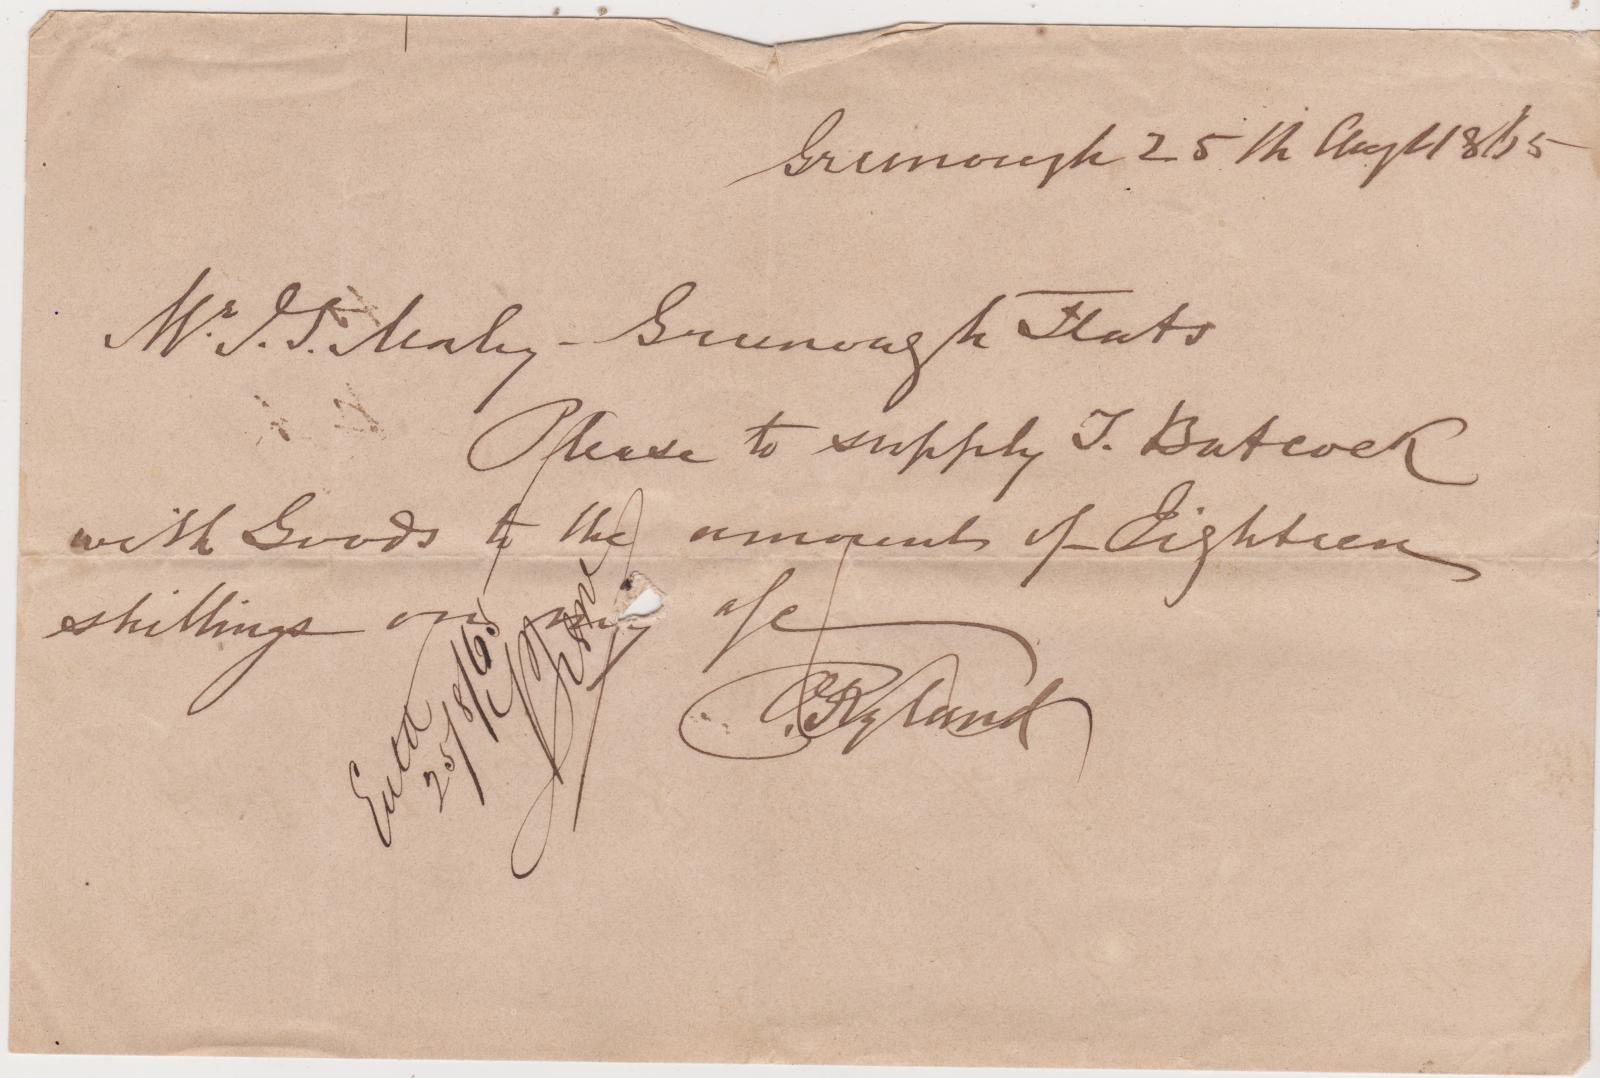 Greenough 25th Augt 1865
Mr. J. S. Maley - Greenough Flats
Please to supply T. Batcock
with Goods to the amount of Eighteen
shillings on my a/c
C. Ryland
Entd
25/8/65